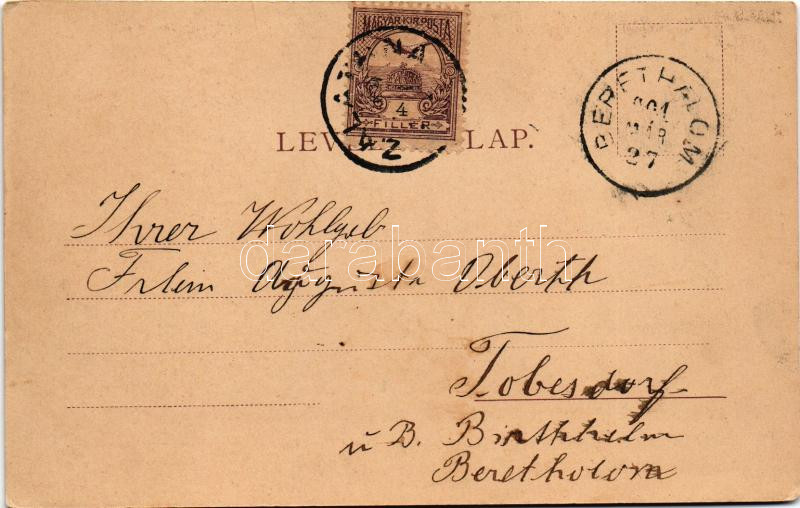 MAGYAR KIR. POSTA
4
FILLÉR
ZALATNA
BERETHALOM
904
MÁR
27
LEV LAP.
Ihrer Wohlgeb
Frlein Augusta Oberth
Tobesdorf
u B. Birthhelm
Berethalom
darabanth